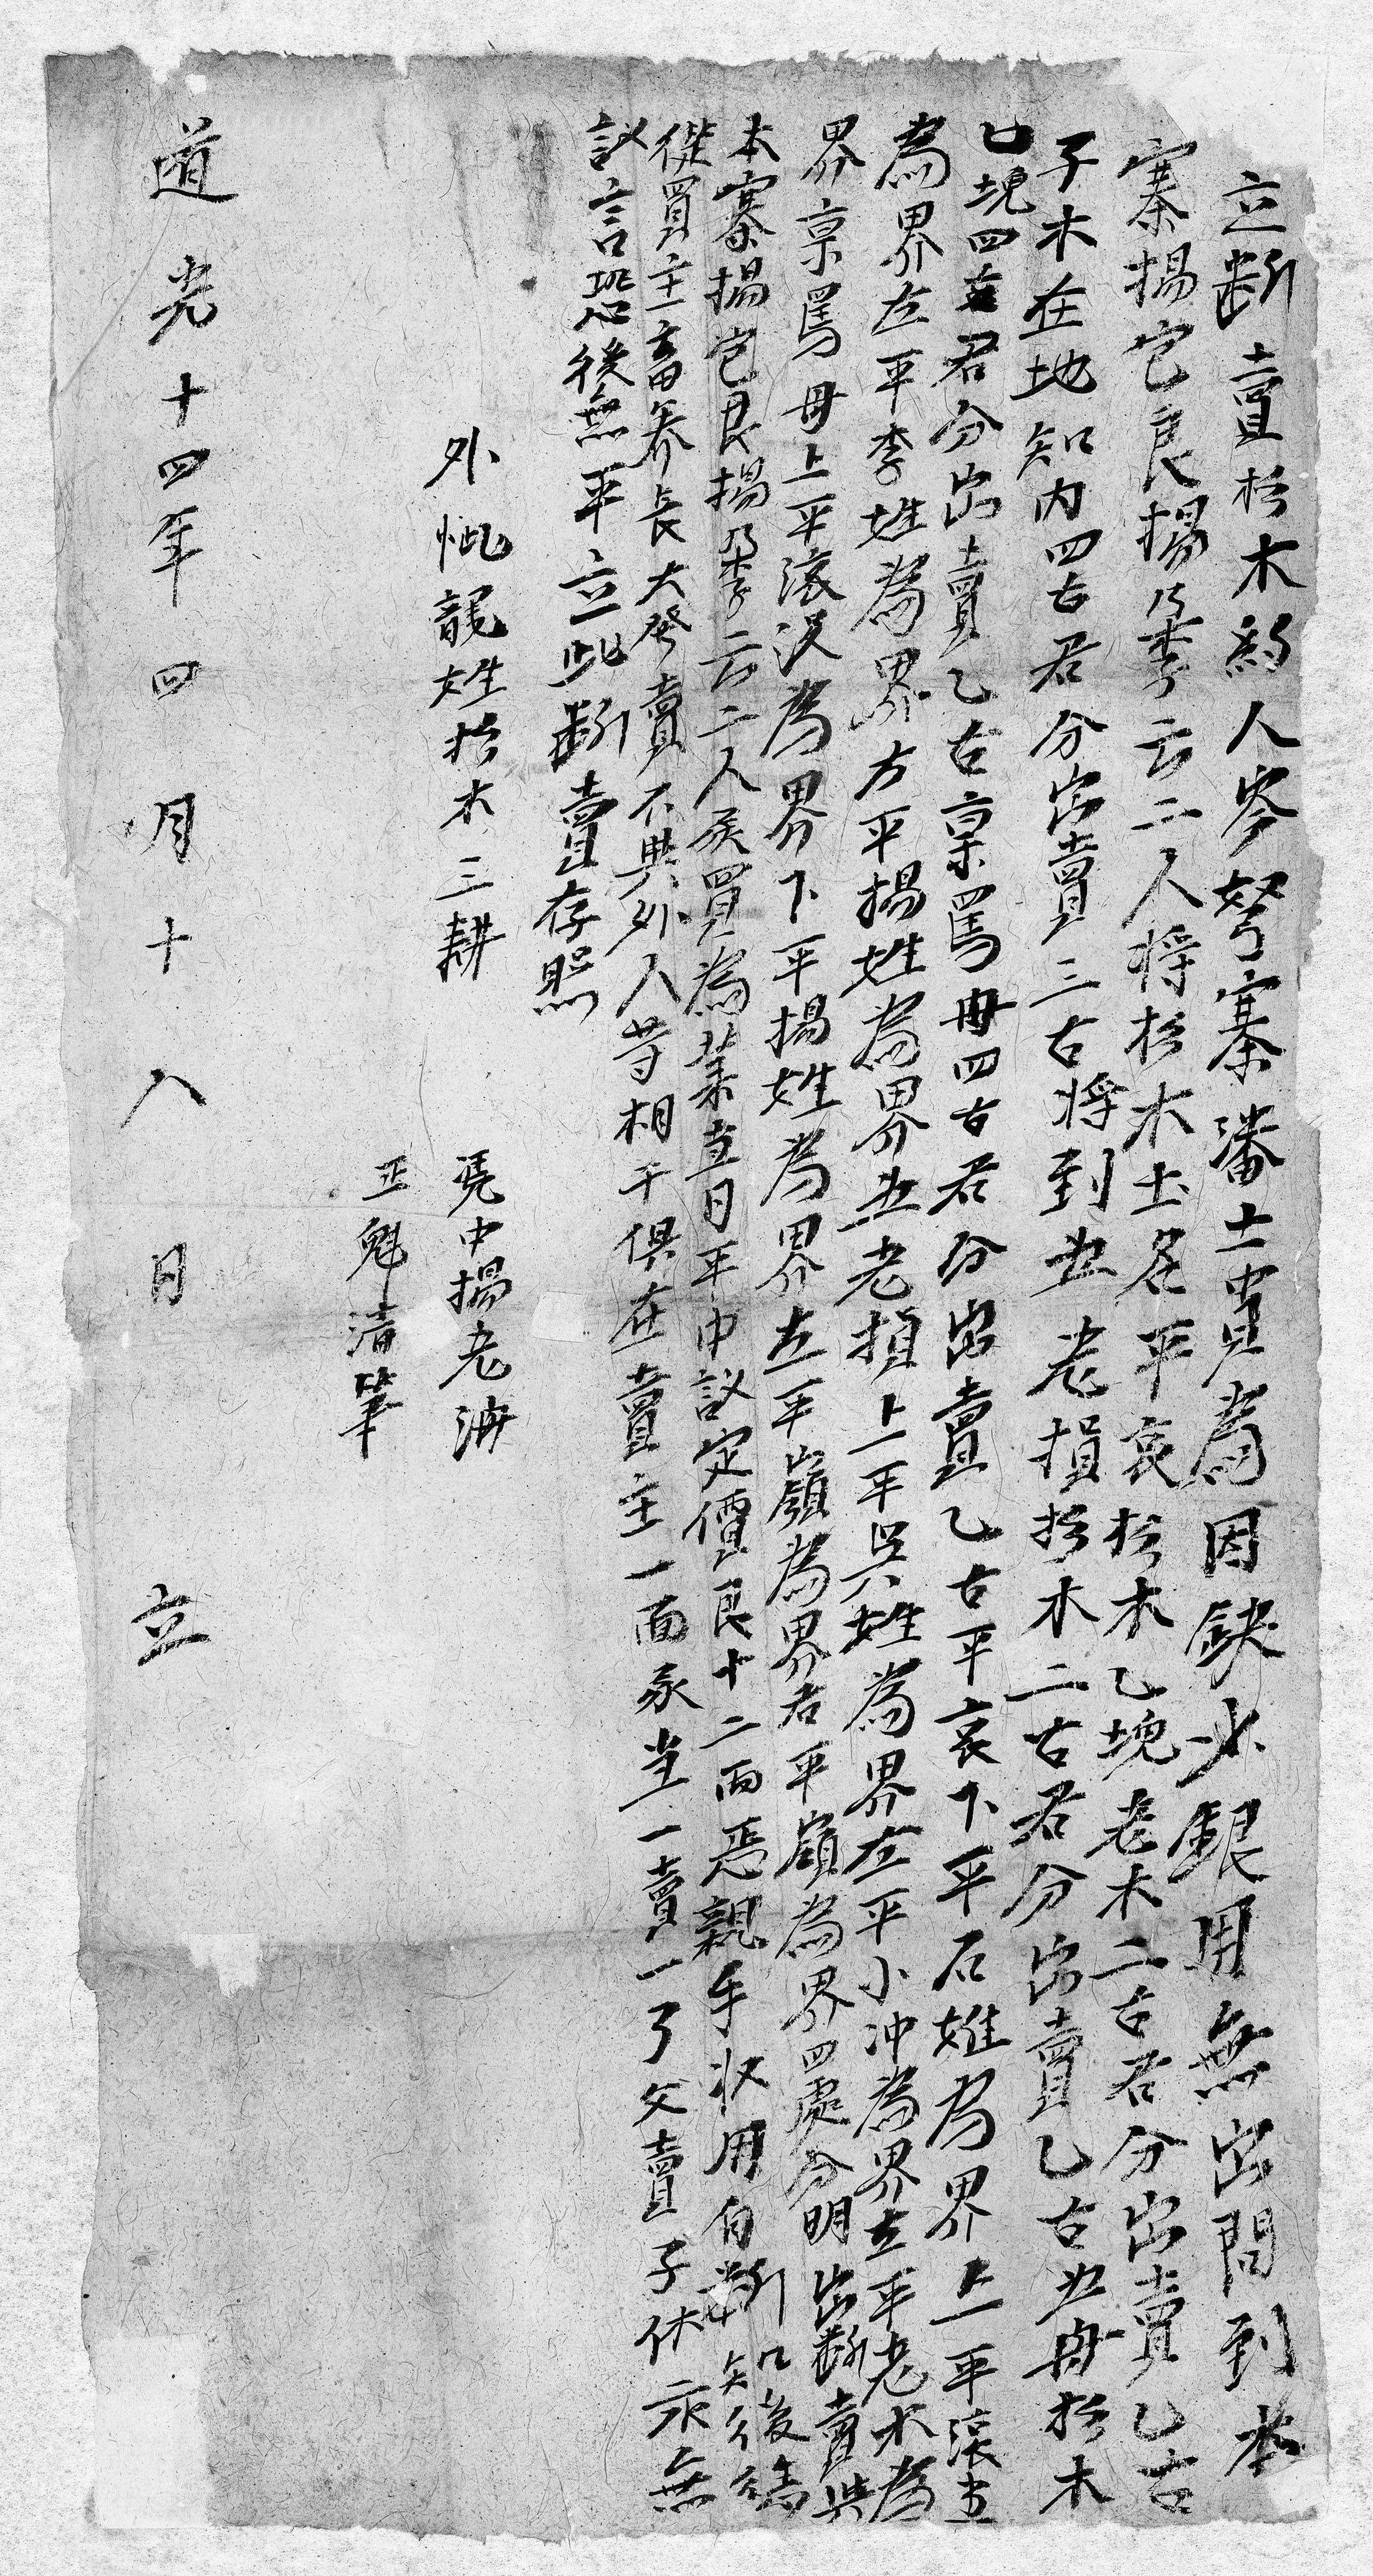 立断賣杉木約人岑努寨潘士貴為因缺少銀用無出問到本
寨楊它良楊乃季云二人將杉木土名平哀杉木乙塊老木二古君分出賣乙古
子木在地知内四古君分出賣三古將到世老損杉木二古君分出賣乙古世毋杉木
乙塊四古君分出賣乙古稟罵毋四古君分出賣乙古平哀下平石姓為界上平滾
為界左平李姓為界方平楊姓為界世老損上平吳姓為界左平小冲為界右平老木為
界稟罵毋上平滾沒為界下平楊姓為界左平嶺為界右平嶺為界四處分明出断賣與
本寨楊它良楊乃季云二人承買為業直日平中議定價艮十二両焉親手收用自断知後
從買主畜养長大發賣不與外人苛相干俱在賣主一面承当一賣一了父賣子休永無
議言恐後無平立此断賣存照
外批龍姓杉木三耕
凭中楊老海
王魁清筆
道光十四年四月十八日立